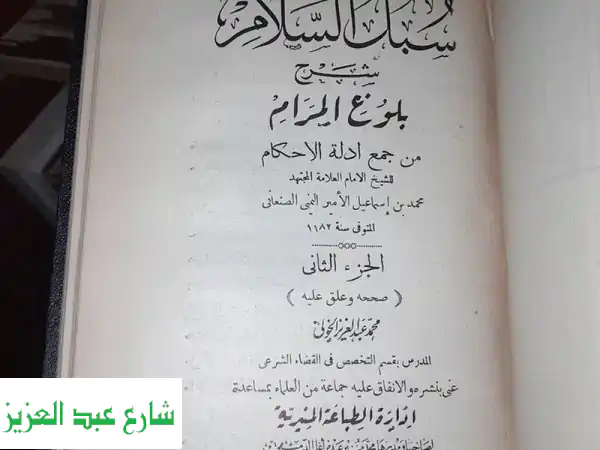 سُبُلُ السَّلَامِ
شرح
بلوغ المرام
من جمع ادلة الاحكام
للشيخ الامام العلامة المجتهد
محمد بن إسماعيل الأمير اليمنى الصنعانى
المتوفى سنة ١١٨٢
الجزء الثانى
( صححه وعلق عليه )
محمد عبد العزيز الخولى
المدرس بقسم التخصص فى القضاء الشرعى
عنى بنشره والانفاق عليه جماعة من العلماء بمساعدة
إدارة الطباعة المنيرية
لصاحبها ومديرها محمد منير عبده اغا الدمشقى
شارع عبد العزيز